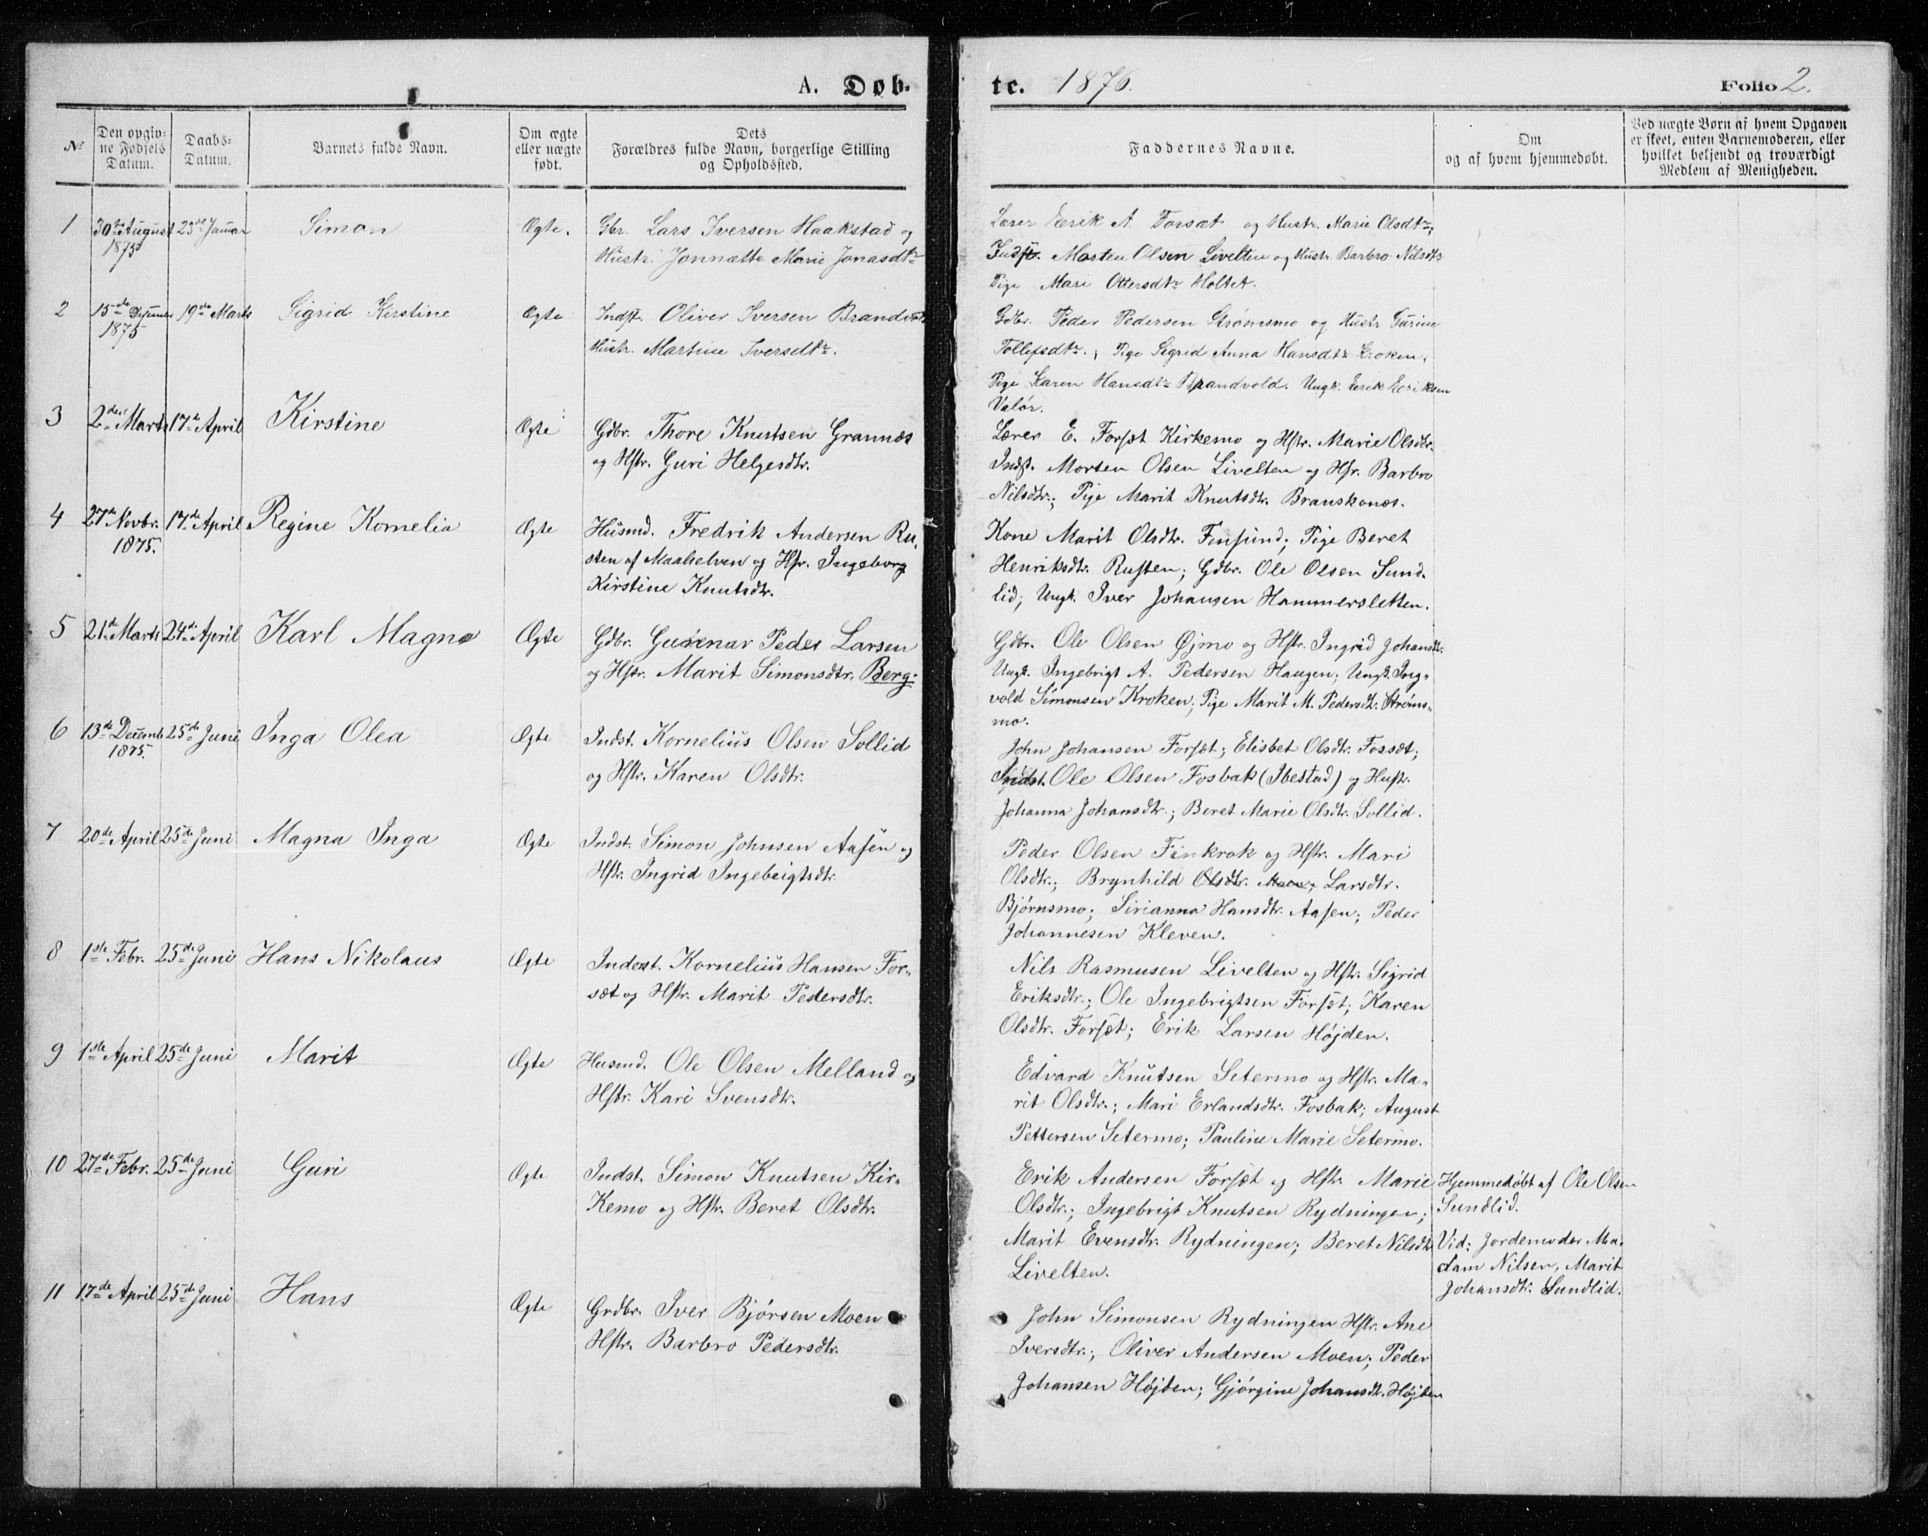 A. Døbte. 1876. Folio 2.
No
Den opgivne Fødsels Datum.
Daabs-Datum.
Barnets fulde Navn.
Om ægte eller uægte født.
Dets Forældres fulde Navn, borgerlige Stilling og Opholdssted.
Faddernes Navne.
Om og af hvem hjemmedøbt.
Ved uægte Børn af hvem Opgaven er skeet, enten Barnemoderen, eller hvilket beljendt og troværdigt Medlem af Menigheden.
1 30te August 1875 23de Januar Simon Ægte.
Gbr. Lars Iversen Haakstad og
Hustr. Jonnætte Marie Jonasdtr
Lærer Eerik A. Forsæt og Hustr. Marie Olsdtr,
Indst. Morten Olsen Livelten og Hustr. Barbro Nilsdtr
Pige Mari Ottersdtr Holtet.
2 15de Desember 1875 19de Marts Sigrid Kirstine Ægte
Indst. Oliver Iversen Brandvold
Hustr. Martine Iversdtr.
Gdbr. Peder Pedersen Strømsmo og Hustr Gurine
Tollefsdtr., Pige Sigrid Anna Hansdtr Kroken,
Pige Karen Hansdtr Brandvold. Ungk. Eerik Eeriksen
Valør.
3 2den Marts 17de April Kirstine Ægte
Gdbr. Thore Knutsen Grannæs
og Hstr. Guri Helgesdtr.
Lærer E. Forsæt Kirkemo og Hstr. Marie Olsdtr.
Indst. Morten Olsen Livelten og Hstr. Barbro
Nilsdtr.; Pige Marit Knutsdtr. Branskonæs.
4 27de Novbr. 1875. 17de April Regine Kornelia Ægte
Husmd. Fredrik Andersen Ru-
sten af Maalselven og Hstr. Ingeborg
Kirstine Knutsdtr.
Kone Marit Olsdtr. Finsund; Pige Beret
Henriksdtr. Rusten; Gdbr. Ole Olsen Sund-
lid; Ungk. Iver Johansen Hammersletten.
5 21de Marts 24de April Karl Magna Ægte
Gdbr. Gunnar Peder Larsen
og Hstr. Marit Simonsdtr. Berg.
Gdbr. Ole Olsen Øjmo og Hstr. Ingrid Johansdtr.
Ungk. Ingebrigt A. Pedersen Haugen; Ungk. Ing-
vold Simonsen Kroken; Pige Marit M. Pedersdtr. Strøms-
mo.
6 13de Decemb 1875. 25de Juni Inga Olea Ægte
Indst. Kornelius Olsen Sollid
og Hstr. Karen Olsdtr.
John Johansen Forsæt; Elisbet Olsdtr. Fossæt;
Indst. Ole Olsen Fosbak (Ibestad) og Hustr.
Johanna Johansdtr.; Beret Marie Olsdtr. Sollid.
7 20de April 25de Juni Magna Inga Ægte
Indst. Simon Johnsen Aasen og
Hstr. Ingrid Ingebrigtsdtr.
Peder Olsen Finkrok og Hstr. Mari
Olsdtr.; Brynhild Olsdtr. Moen, Larsdtr.
Bjørnsmo; Sirianna Hansdtr. Aasen; Peder
Johannesen Kleven.
8 1ste Febr. 25de Juni Hans Nikolaus Ægte
Inderst. Kornelius Hansen For-
sæt og Hstr. Marit Pedersdtr.
Nils Rasmusen Livelten og Hstr. Sigrid
Eriksdtr.; Ole Ingebrigtsen Forsæt; Karen
Olsdtr. Forsæt; Erik Larsen Højden.
9 1ste April 25de Juni Marit Ægte
Husmd. Ole Olsen Melland og
Hstr. Kari Svensdtr.
Edvard Knutsen Setermo og Hstr. Ma-
rit Olsdtr.; Mari Erlandsdtr. Fosbak; August
Pettersen Setermo; Pauline Marie Setermo.
10 27de Febr. 25de Juni Guri Ægte
Indst. Simon Knutsen Kir-
kemo og Hstr. Beret Olsdtr.
Erik Andersen Forsæt og Hstr. Marie
Olsdtr.; Ingebrigt Knutsen Rydningen;
Marit Evensdtr. Rydningen; Beret Nilsdtr.
Livelten.
Hjemmedøbt af Ole Olsen
Sundlid.
Vid: Jordemoder Ma-
dam Nilsen, Marit
Johansdtr. Sundlid.
11 17de April 25de Juni Hans Ægte
Grdbr. Iver Bjørsen Moen
Hstr. Barbro Pedersdtr.
John Simonsen Rydningen Hstr. Ane
Iversdtr.; Oliver Andersen Moen; Peder
Johansen Højden; Gjørgine Johansdtr. Højden